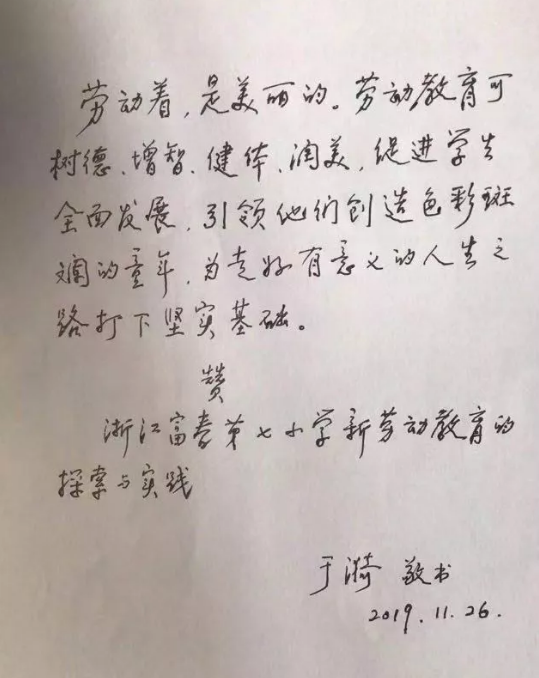 劳动着，是美丽的。劳动教育可
树德、增智、健体、润美，促进学生
全面发展，引领他们创造色彩斑
斓的童年，为走好有意义的人生之
路打下坚实基础。
赞
浙江富春第七小学新劳动教育的
探索与实践
于漪 敬书
2019.11.26.